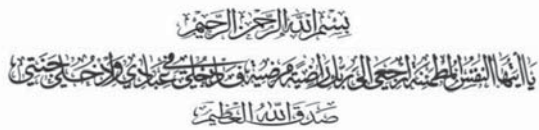 بسم الله الرحمن الرحيم
يا أيتها النفس المطمئنة ارجعي الى ربك راضية مرضية فادخلي في عبادي وادخلي جنتي
صدق الله العظيم